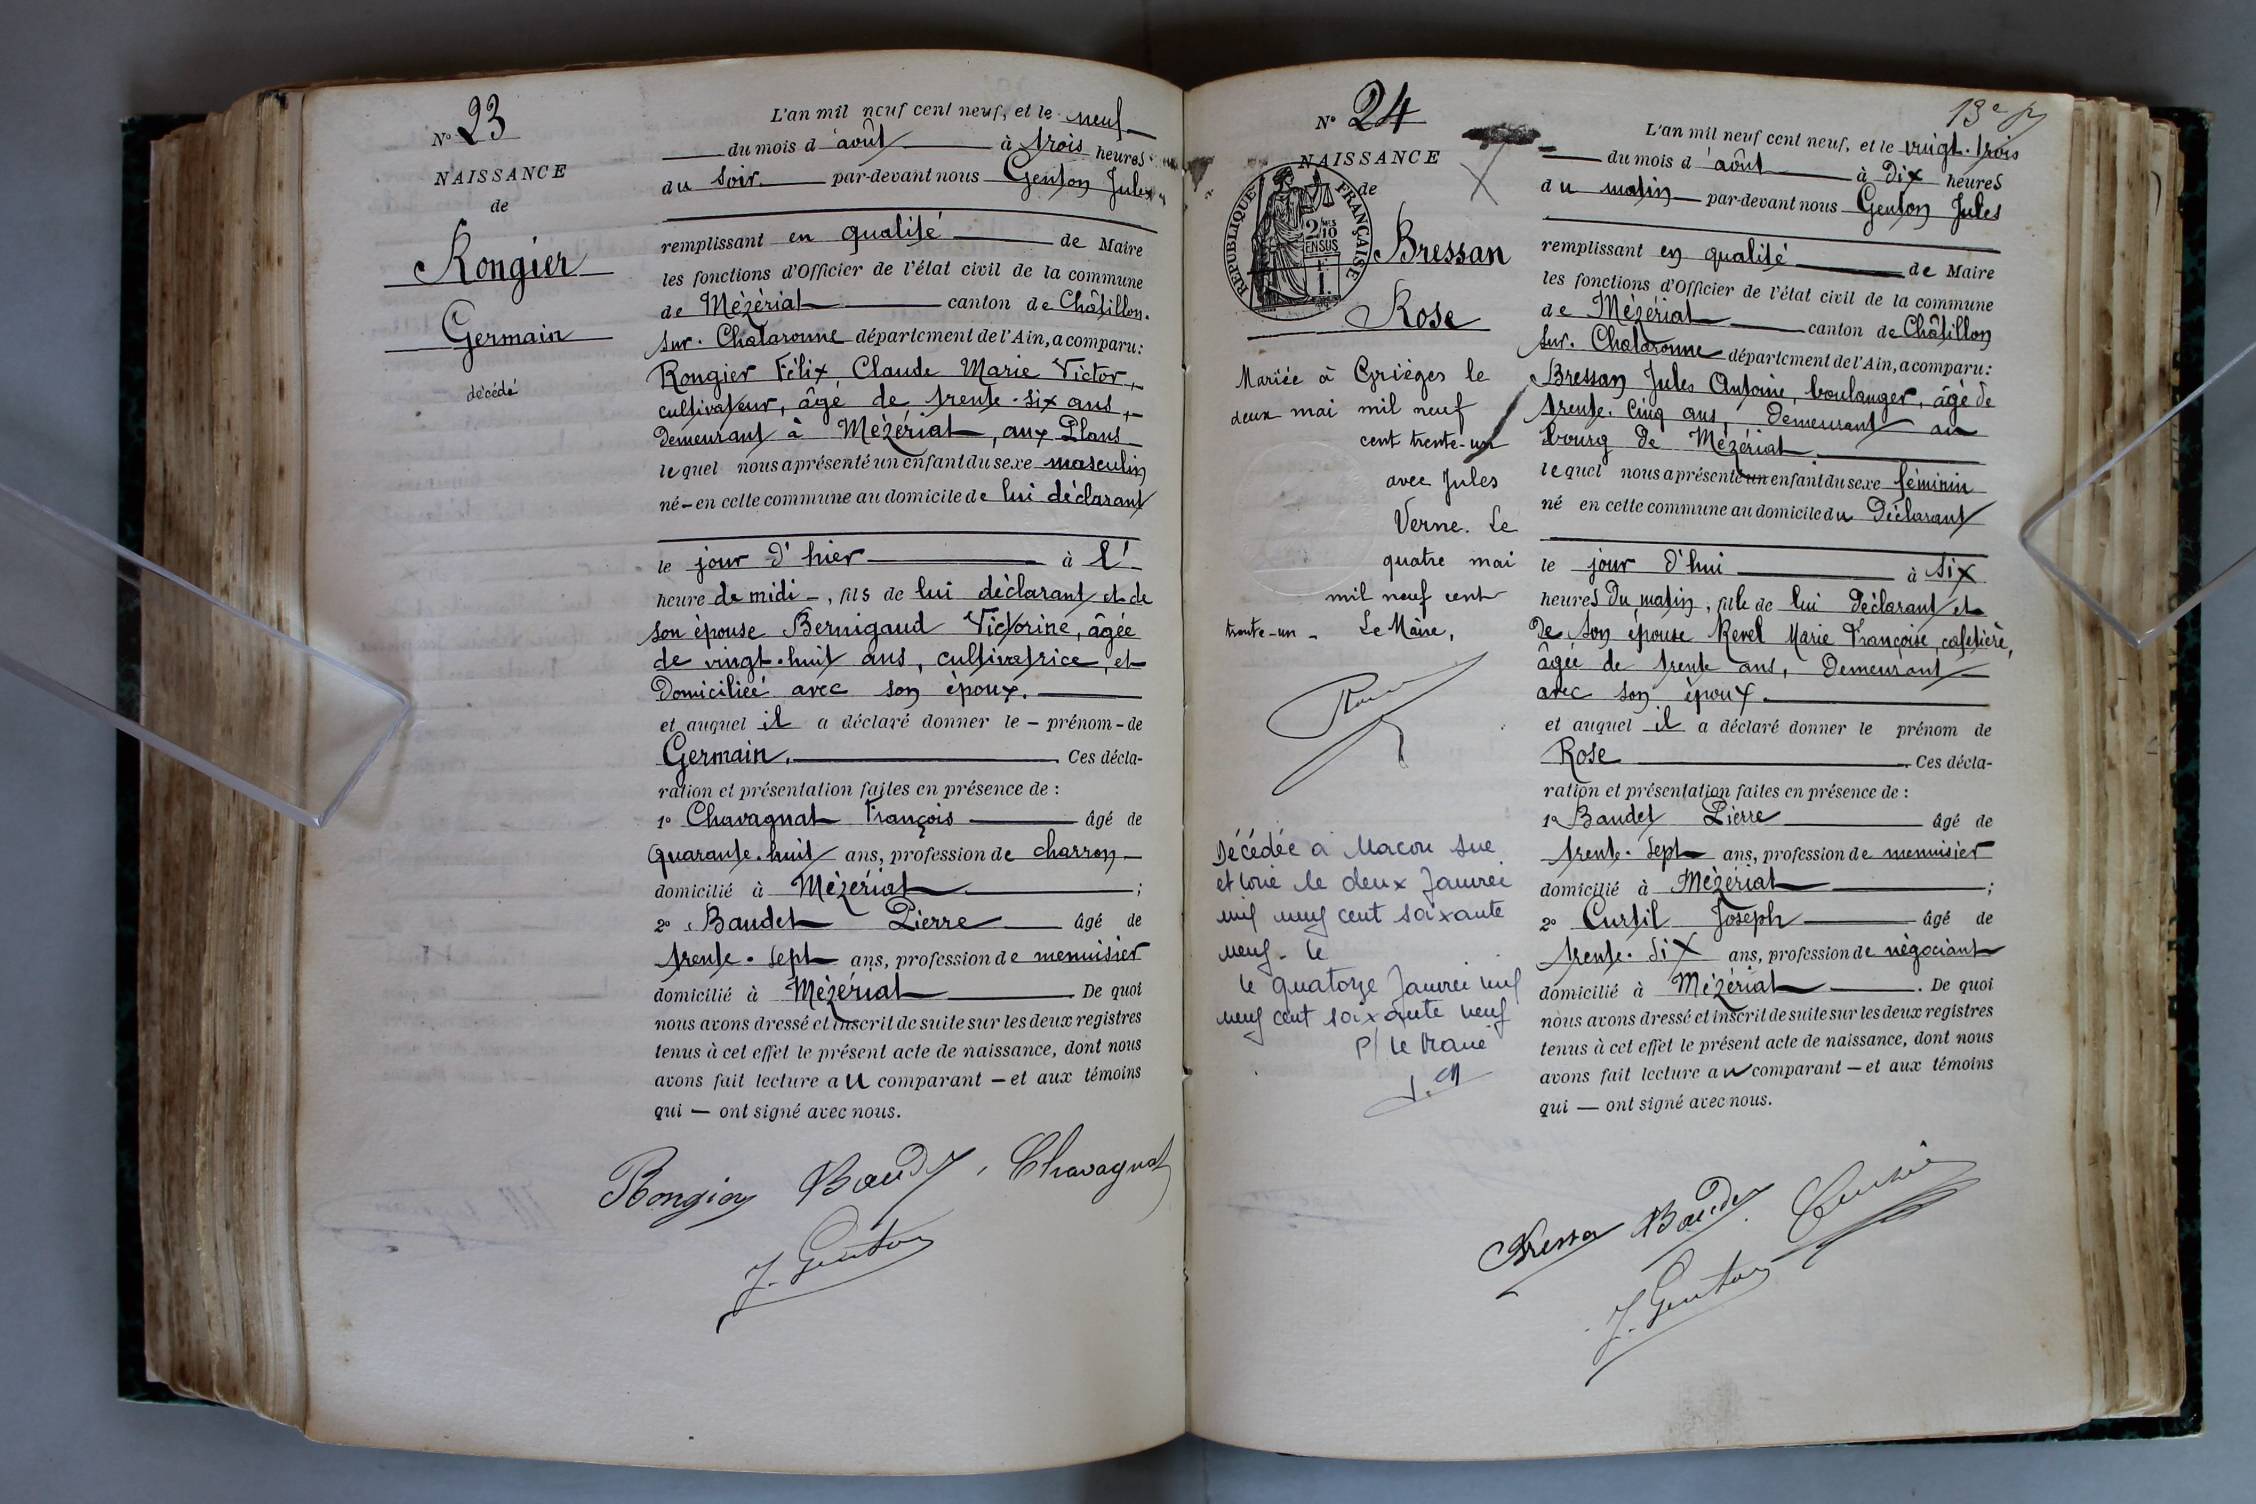 N° 23
NAISSANCE
de
Rongier
Germain
décédé
L'an mil neuf cent neuf, et le neuf
du mois d'août à trois heures
du soir par-devant nous Genton Jules
remplissant en qualité de Maire
les fonctions d'Officier de l'état civil de la commune
de Mézériat canton de Châtillon-
sur-Chalaronne département de l'Ain, a comparu:
Rongier Félix, Claude Marie Victor,
cultivateur, âgé de trente-six ans,
demeurant à Mézériat, aux Plans
lequel nous a présenté un enfant du sexe masculin
né en cette commune au domicile de lui déclarant
le jour d'hier à l'
heure de midi, fils de lui déclarant et de
son épouse Bernigaud Victorine, âgée
de vingt-huit ans, cultivatrice, et
domiciliée avec son époux.
et auquel il a déclaré donner le prénom de
Germain. Ces décla-
ration et présentation faites en présence de :
1° Chavagnat François âgé de
quarante-huit ans, profession de charron
domicilié à Mézériat ;
2° Baudet Pierre âgé de
trente-sept ans, profession de menuisier
domicilié à Mézériat . De quoi
nous avons dressé et inscrit de suite sur les deux registres
tenus à cet effet le présent acte de naissance, dont nous
avons fait lecture au comparant et aux témoins
qui ont signé avec nous.
Rongier Baudet Chavagnat
J. Genton
13e
N° 24
NAISSANCE
de
RÉPUBLIQUE FRANÇAISE
2/10
EN SUS
1F
Bressan
Rose
Mariée à Grièges le
deux mai mil neuf
cent trente-un
avec Jules
Verne. Le
quatre mai
mil neuf cent
trente-un. Le Maire,
Décédée à Macon sue
et Loire le deux Janvier
mil neuf cent soixante
neuf. le
le quatorze Janvier mil
neuf cent soixante neuf
P/ le Maire
L'an mil neuf cent neuf, et le vingt-trois
du mois d'août à dix heures
du matin par-devant nous Genton Jules
remplissant en qualité de Maire
les fonctions d'Officier de l'état civil de la commune
de Mézériat canton de Châtillon
sur-Chalaronne département de l'Ain, a comparu:
Bressan Jules Antoine, boulanger, âgé de
trente-cinq ans, demeurant au
bourg de Mézériat.
lequel nous a présenté un enfant du sexe féminin
né en cette commune au domicile du déclarant
le jour d'hui à six
heures du matin, fille de lui déclarant et
de son épouse Revel Marie Françoise, cafetière,
âgée de trente ans, demeurant
avec son époux.
et auquel il a déclaré donner le prénom de
Rose. Ces décla-
ration et présentation faites en présence de :
1° Baudet Pierre âgé de
trente-sept ans, profession de menuisier
domicilié à Mézériat ;
2° Curtil Joseph âgé de
trente-six ans, profession de négociant
domicilié à Mézériat . De quoi
nous avons dressé et inscrit de suite sur les deux registres
tenus à cet effet le présent acte de naissance, dont nous
avons fait lecture au comparant — et aux témoins
qui — ont signé avec nous.
Bressan Baudet Curtil
J. Genton